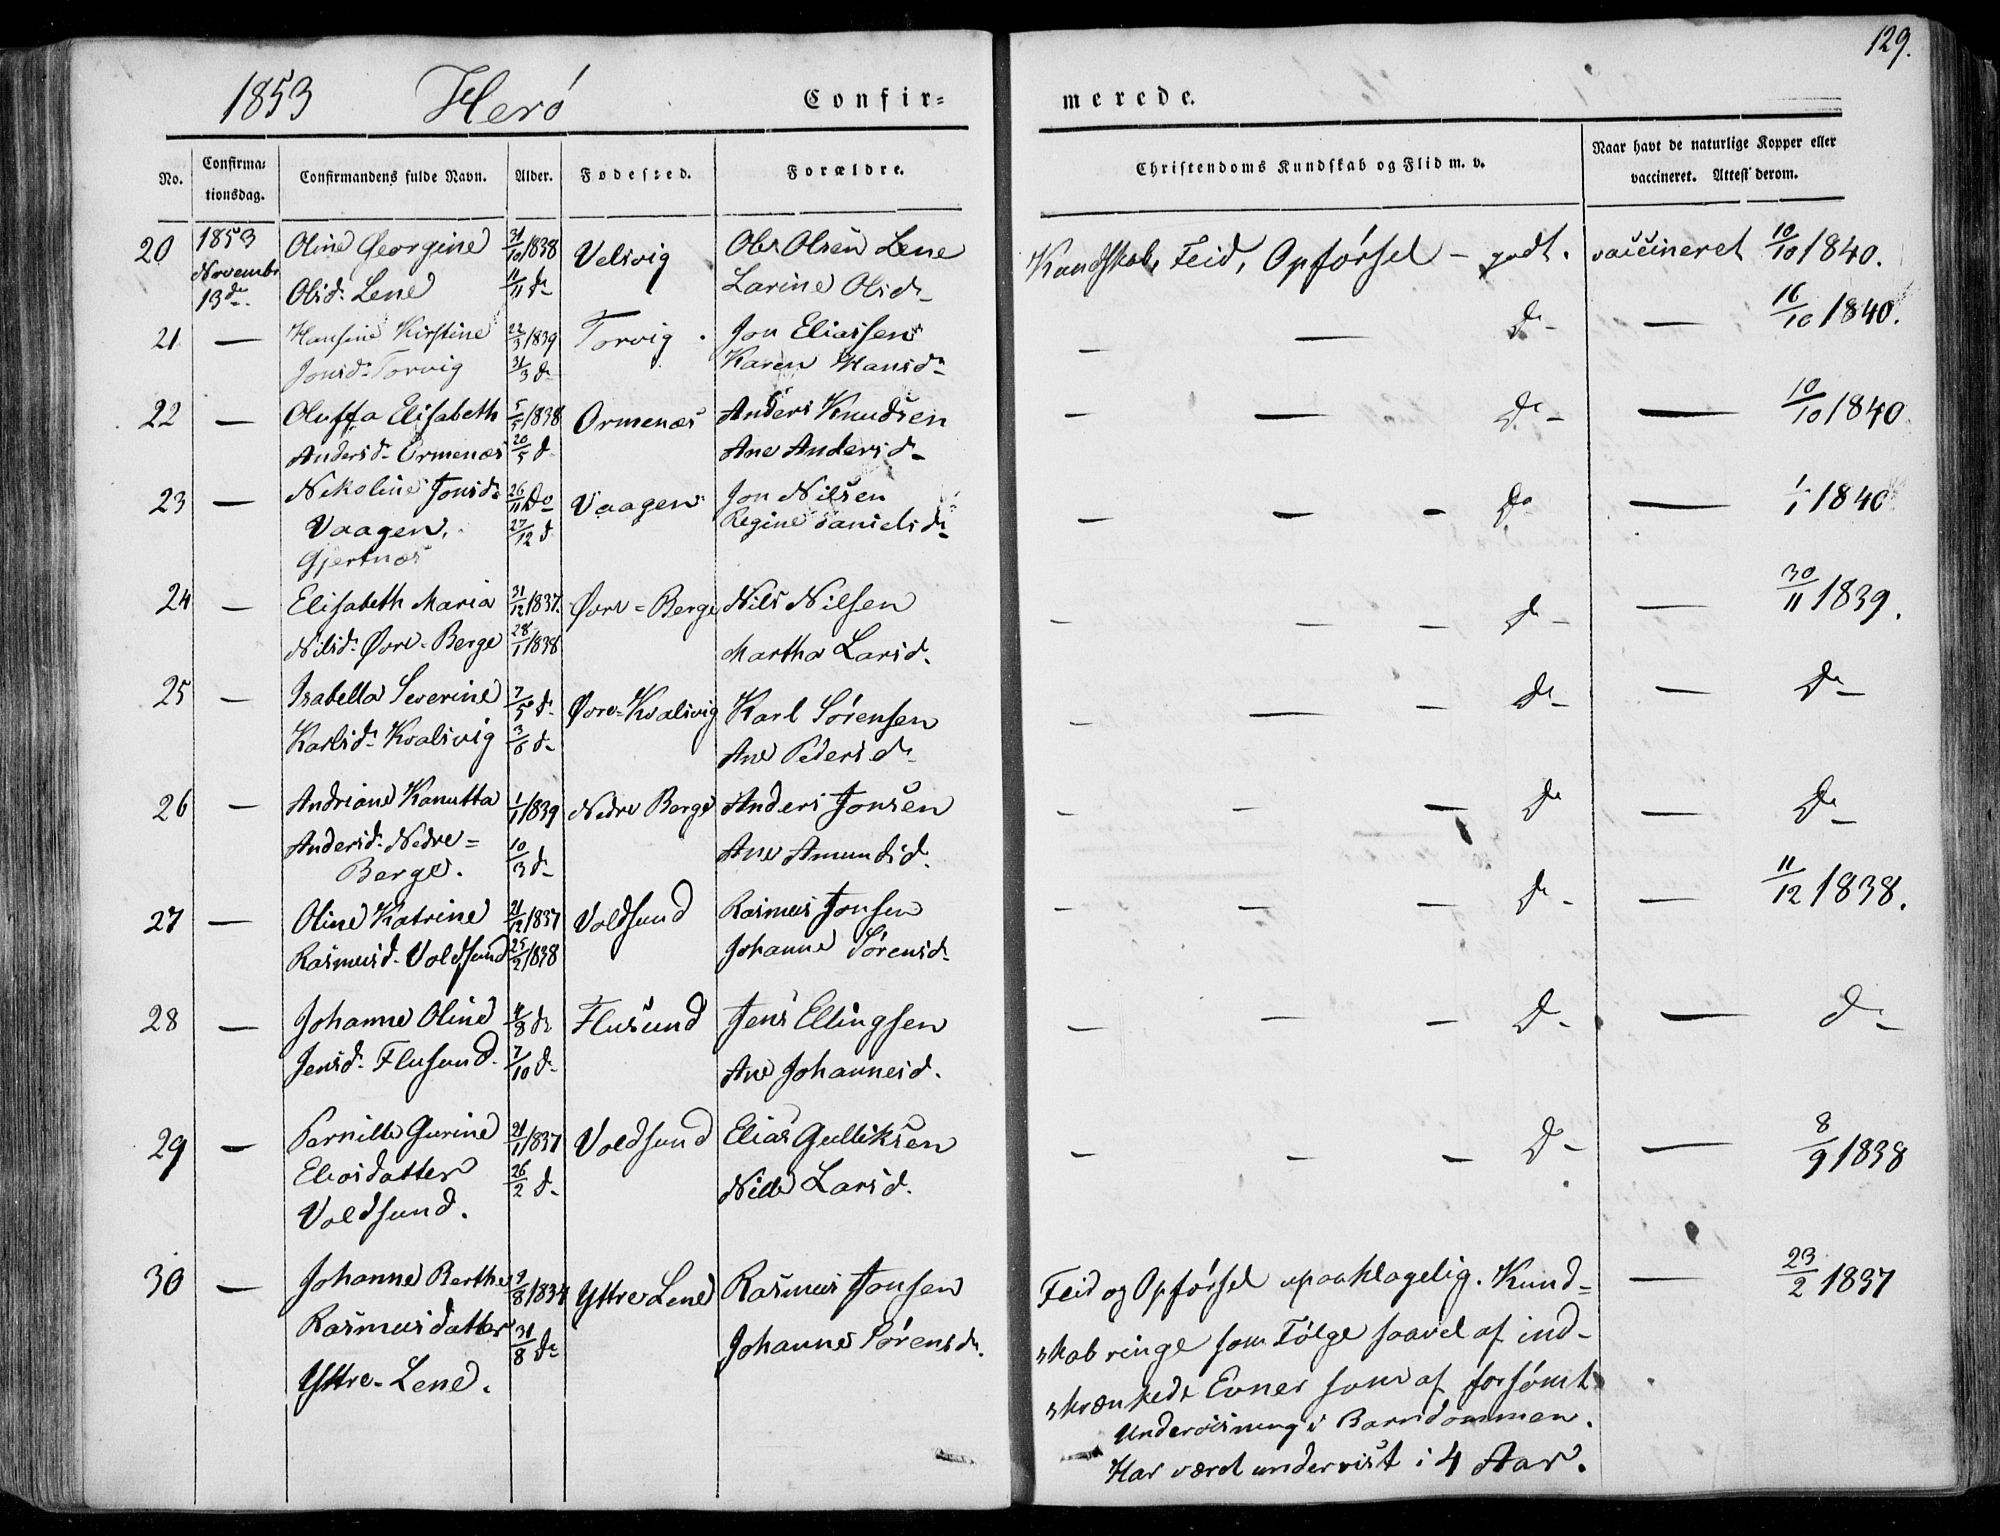 129.
1853 Herø Confir=
merede.
No. Confirma=
tionsdag. Confirmandens fulde Navn. Alder. Fødested. Forældre. Christendoms Kundskab og Flid m. v. Naar havt de naturlige Kopper eller
vaccineret. Attest derom.
20 1853 Oline Georgine 31/10 1838 Velsvig Ole Olsen Lene Kundskab, Feid, Opførsel - godt. vaccineret 10/10 1840.
Novembr Olsd. Lene 11/11 d- Larine Olsd-
13de
21 — Hansine Kirstine 22/3 1839 Torvig Jon Eliassen — — d- — 16/10 1840.
Jonsd. Torvig 31/3 d- Karen Hansd-
22 — Oluffa Elisabeth 5/5 1838 Ormenæs Anders Knudsen — — D- — 10/10 1840
Andersd. Ormenæs 20/5 d Ane Andersd-
23 — Nikoline Jonsd. 26/11 Do Vaagen Jon Nilsen — — - Do — 1/1 1840
Vaagen. 27/12 d Regine Danielsd-
Gjertnæs
24 — Elisabeth Maria 31/12 1837. Øvre=Berge Nils Nilsen — — — d- — 30/11 1839.
Nilsd. Øvre-Berge 28/1 1838 Martha Larsd.
25 — Isabella Severine 7/5 d- Øvre-Kvalsvig Karl Sørensen — — — d- — D-
Karlsd. Kvalsvig 3/6 d- Ane Pedersd-
26 — Andriane Kanutta 1/1 1839 Nedre Berge Anders Jonsen — — — D — D-
Andersd. Nedre= 10/3 d- Ane Amundsd.
Berge.
27 — Oline Katrine 21/12 1837 Voldsund Rasmus Jonsen — — — d- — 11/12 1838.
Rasmusd. Voldsund 25/2 1838 Johanne Sørensd-
28 — Johanne Oline 4/8 d- Flusund Jens Ellingsen — — — D- — d-
Jensd. Flusund. 7/10 d- Ane Johannesd.
29 — Pernille Gurine 21/1 1837 Voldsund Elias Gulliksen — — — D- — 8/9 1838
Eliasdatter 26/2 d- Nille Larsd.
Voldsund.
30 — Johanne Berthe 9/8 1834 Yttre Lene Rasmus Jonsen Feid og Opførsel upaaklagelig. Kund= — 23/2 1837
Rasmusdatter 31/8 d- Johanne Sørensd. skab ringe som Følge saavel af ind-
Yttre-Lene. skrænkede Evner som af forsømt
Underviisning i Barndommen.
Har været undervist i 4 Aar.